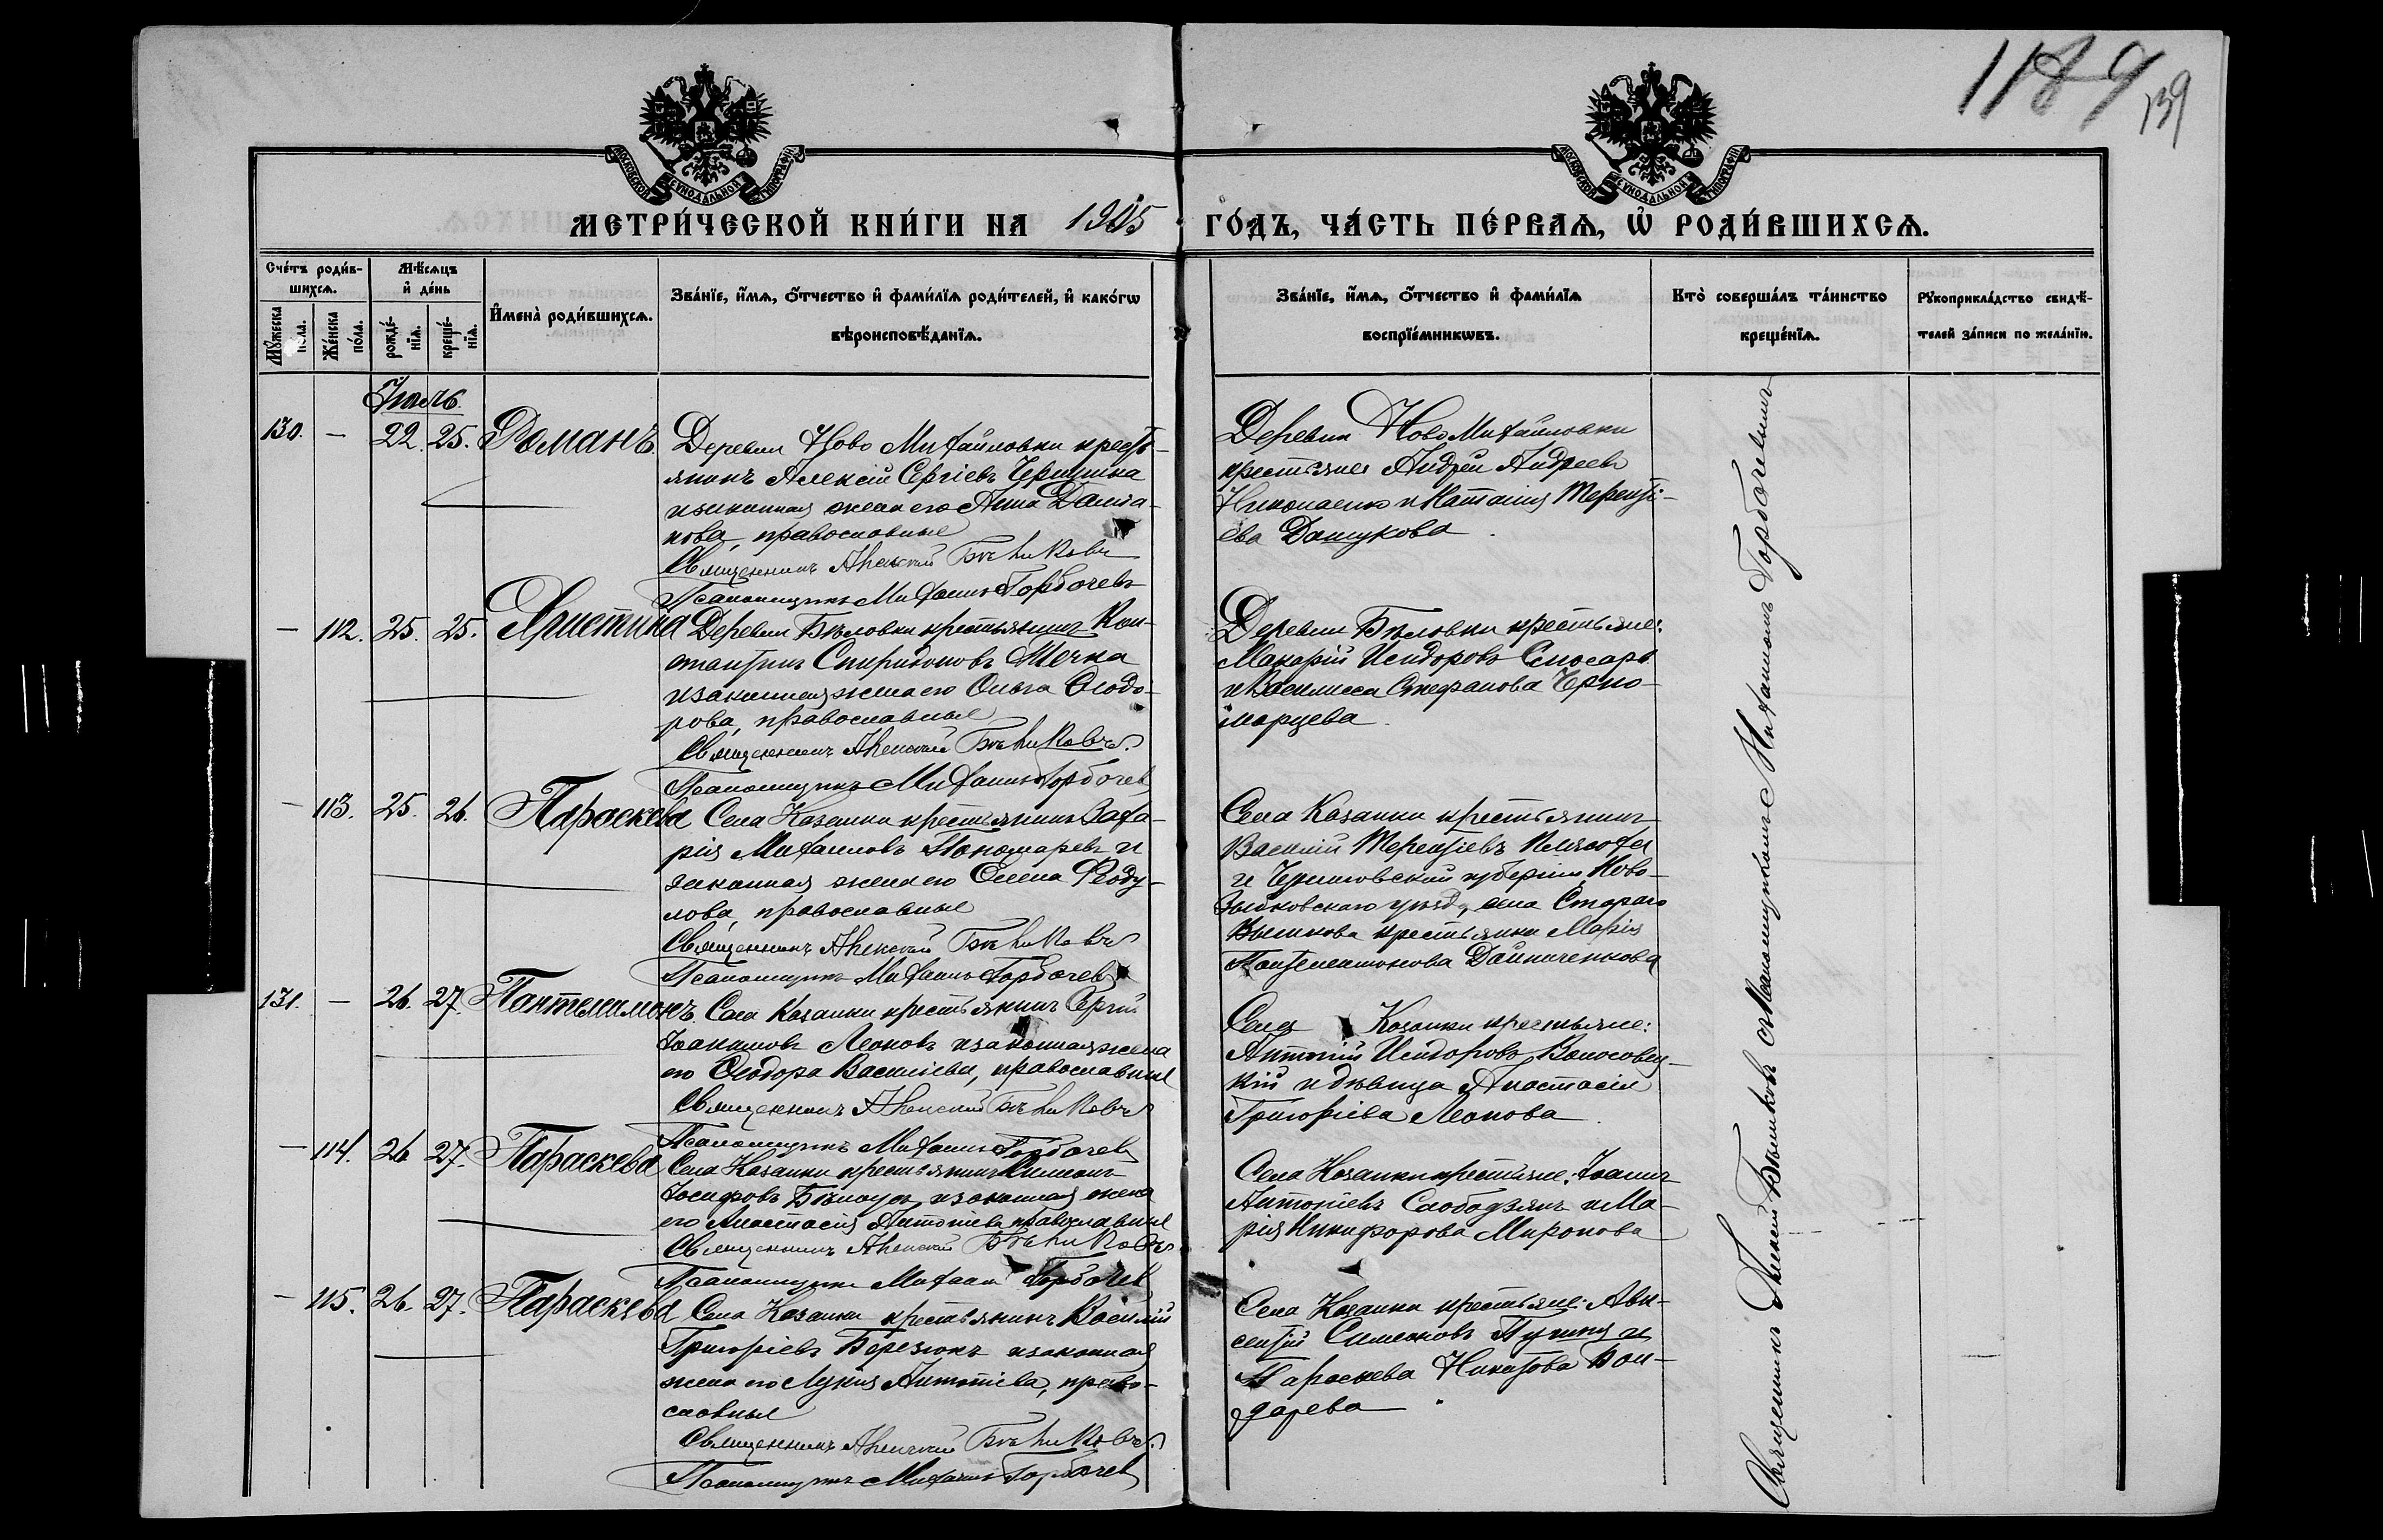 1189
139
МОСКОВСКОЙ СѴНОДАЛЬНОЙ ТИПОГРАФІИ
МОСКОВСКОЙ СѴНОДАЛЬНОЙ ТИПОГРАФІИ
МЕТРИ́ЧЕСКОЙ КНИ́ГИ НА 1905 ГО́ДЪ, ЧА́СТЬ ПЕ́РВАѦ, Ѡ РОДИ́ВШИХСѦ.
Сче́тъ роди́в-
шихсѧ.
Мꙋ́жеска
по́ла.
Же́нска
по́ла.
Мѣ́сѧцъ
и҆ де́нь
рожде́-
нїѧ.
креще́-
нїѧ.
И҆мена̀ роди́вшихсѧ.
Зва́нїе, и҆́мѧ, ѻ҆́тчество и҆ фами́лїѧ роди́телей, и҆ како́гѡ
вѣроисповѣ́данїѧ.
Зва́нїе, и҆́мѧ, ѻ҆́тчество и҆ фами́лїѧ
воспрїе́мникѡвъ.
Кто̀ соверша́лъ та́инство
креще́нїѧ.
Рꙋкоприкла́дство свидѣ́-
телей за́писи по жела́нїю.
Іюль
130. — 22. 25. Романъ.
Деревни Ново Михайловки кресть-
янинъ Алексій Сергіевъ
и законная жена его Анна
нова, православные
Священникъ Алексій Бѣликовъ
Псаломщикъ Михаилъ Горбачевъ
Деревни Ново Михайловки
крестьяне Андрей Андреевъ
Николаенко и Наталія Теренті-
ева Дашукова
— 112. 25. 25. Христина
Деревни Бѣловки крестьянинъ Кон-
стантинъ Спиридоновъ
и законная жена его Ольга Ѳеодо-
рова, православные
Священникъ Алексій Бѣликовъ.
Псаломщикъ Михаилъ Горбачевъ
Деревни Бѣловки крестьяне:
Макарій Исидоровъ Слюсарь
и Василисса Стефанова Черно-
морцева
— 113. 25. 26. Параскева
Села Казанки крестьянинъ Заха-
рія Михаиловъ Пономаревъ и
законная жена его Елена Ѳеоду-
лова, православные
Священникъ Алексій Бѣликовъ
Псаломщикъ Михаилъ Горбачевъ
Села Казанки крестьянинъ
Василій Терентіевъ
и Черниговской губерніи Ново-
зыбковскаго уѣзда, села Стараго
Вышкова крестьянка Марія
Пантелеимонова
131. — 26. 27. Пантелимонъ.
Села Казанки крестьянинъ Сергій
Іоакимовъ Леоновъ и законная жена
его Ѳеодора Василіева, православные
Священникъ Алексій Бѣликовъ
Псаломщикъ Михаилъ Горбачевъ
Села Казанки крестьяне:
Антоній Исидоровъ Волосовец-
кій и дѣвица Анастасія
Григоріева Леонова
— 114. 26. 27. Параскева
Села Казанки крестьянинъ Симеонъ
Іосифовъ Бѣлоусъ и законная жена
его Анастасія Антоніева православные
Священникъ Алексій Бѣликовъ
Псаломщикъ Михаилъ Горбачевъ
Села Казанки крестьяне: Іоаннъ
Антоніевъ Слободзянъ и Ма-
рія Никифорова Миронова
— 115. 26. 27. Параскева
Села Казанки крестьянинъ Василій
Григоріевъ Березюкъ и законная
жена его Лукія Антоніева, право-
славные
Священникъ Алексій Бѣликовъ.
Псаломщикъ Михаилъ Горбачевъ
Села Казанки крестьяне: Авк-
сентій Симеоновъ и
Параскева Никитова Бон-
дарева
Священникъ Алексій Бѣликовъ съ псаломщикомъ Михаиломъ Горбачевымъ